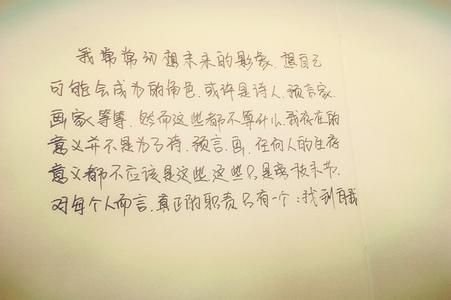 我常常幻想未来的影象,想自己
可能会成为的角色,或许是诗人、预言家、
画家等等,然而这些都不算什么,我存在的
意义并不是为了诗、预言、画,任何人的生存
意义都不应该是这些,这些只是旁枝末节.
对每个人而言,真正的职责只有一个:找到自我